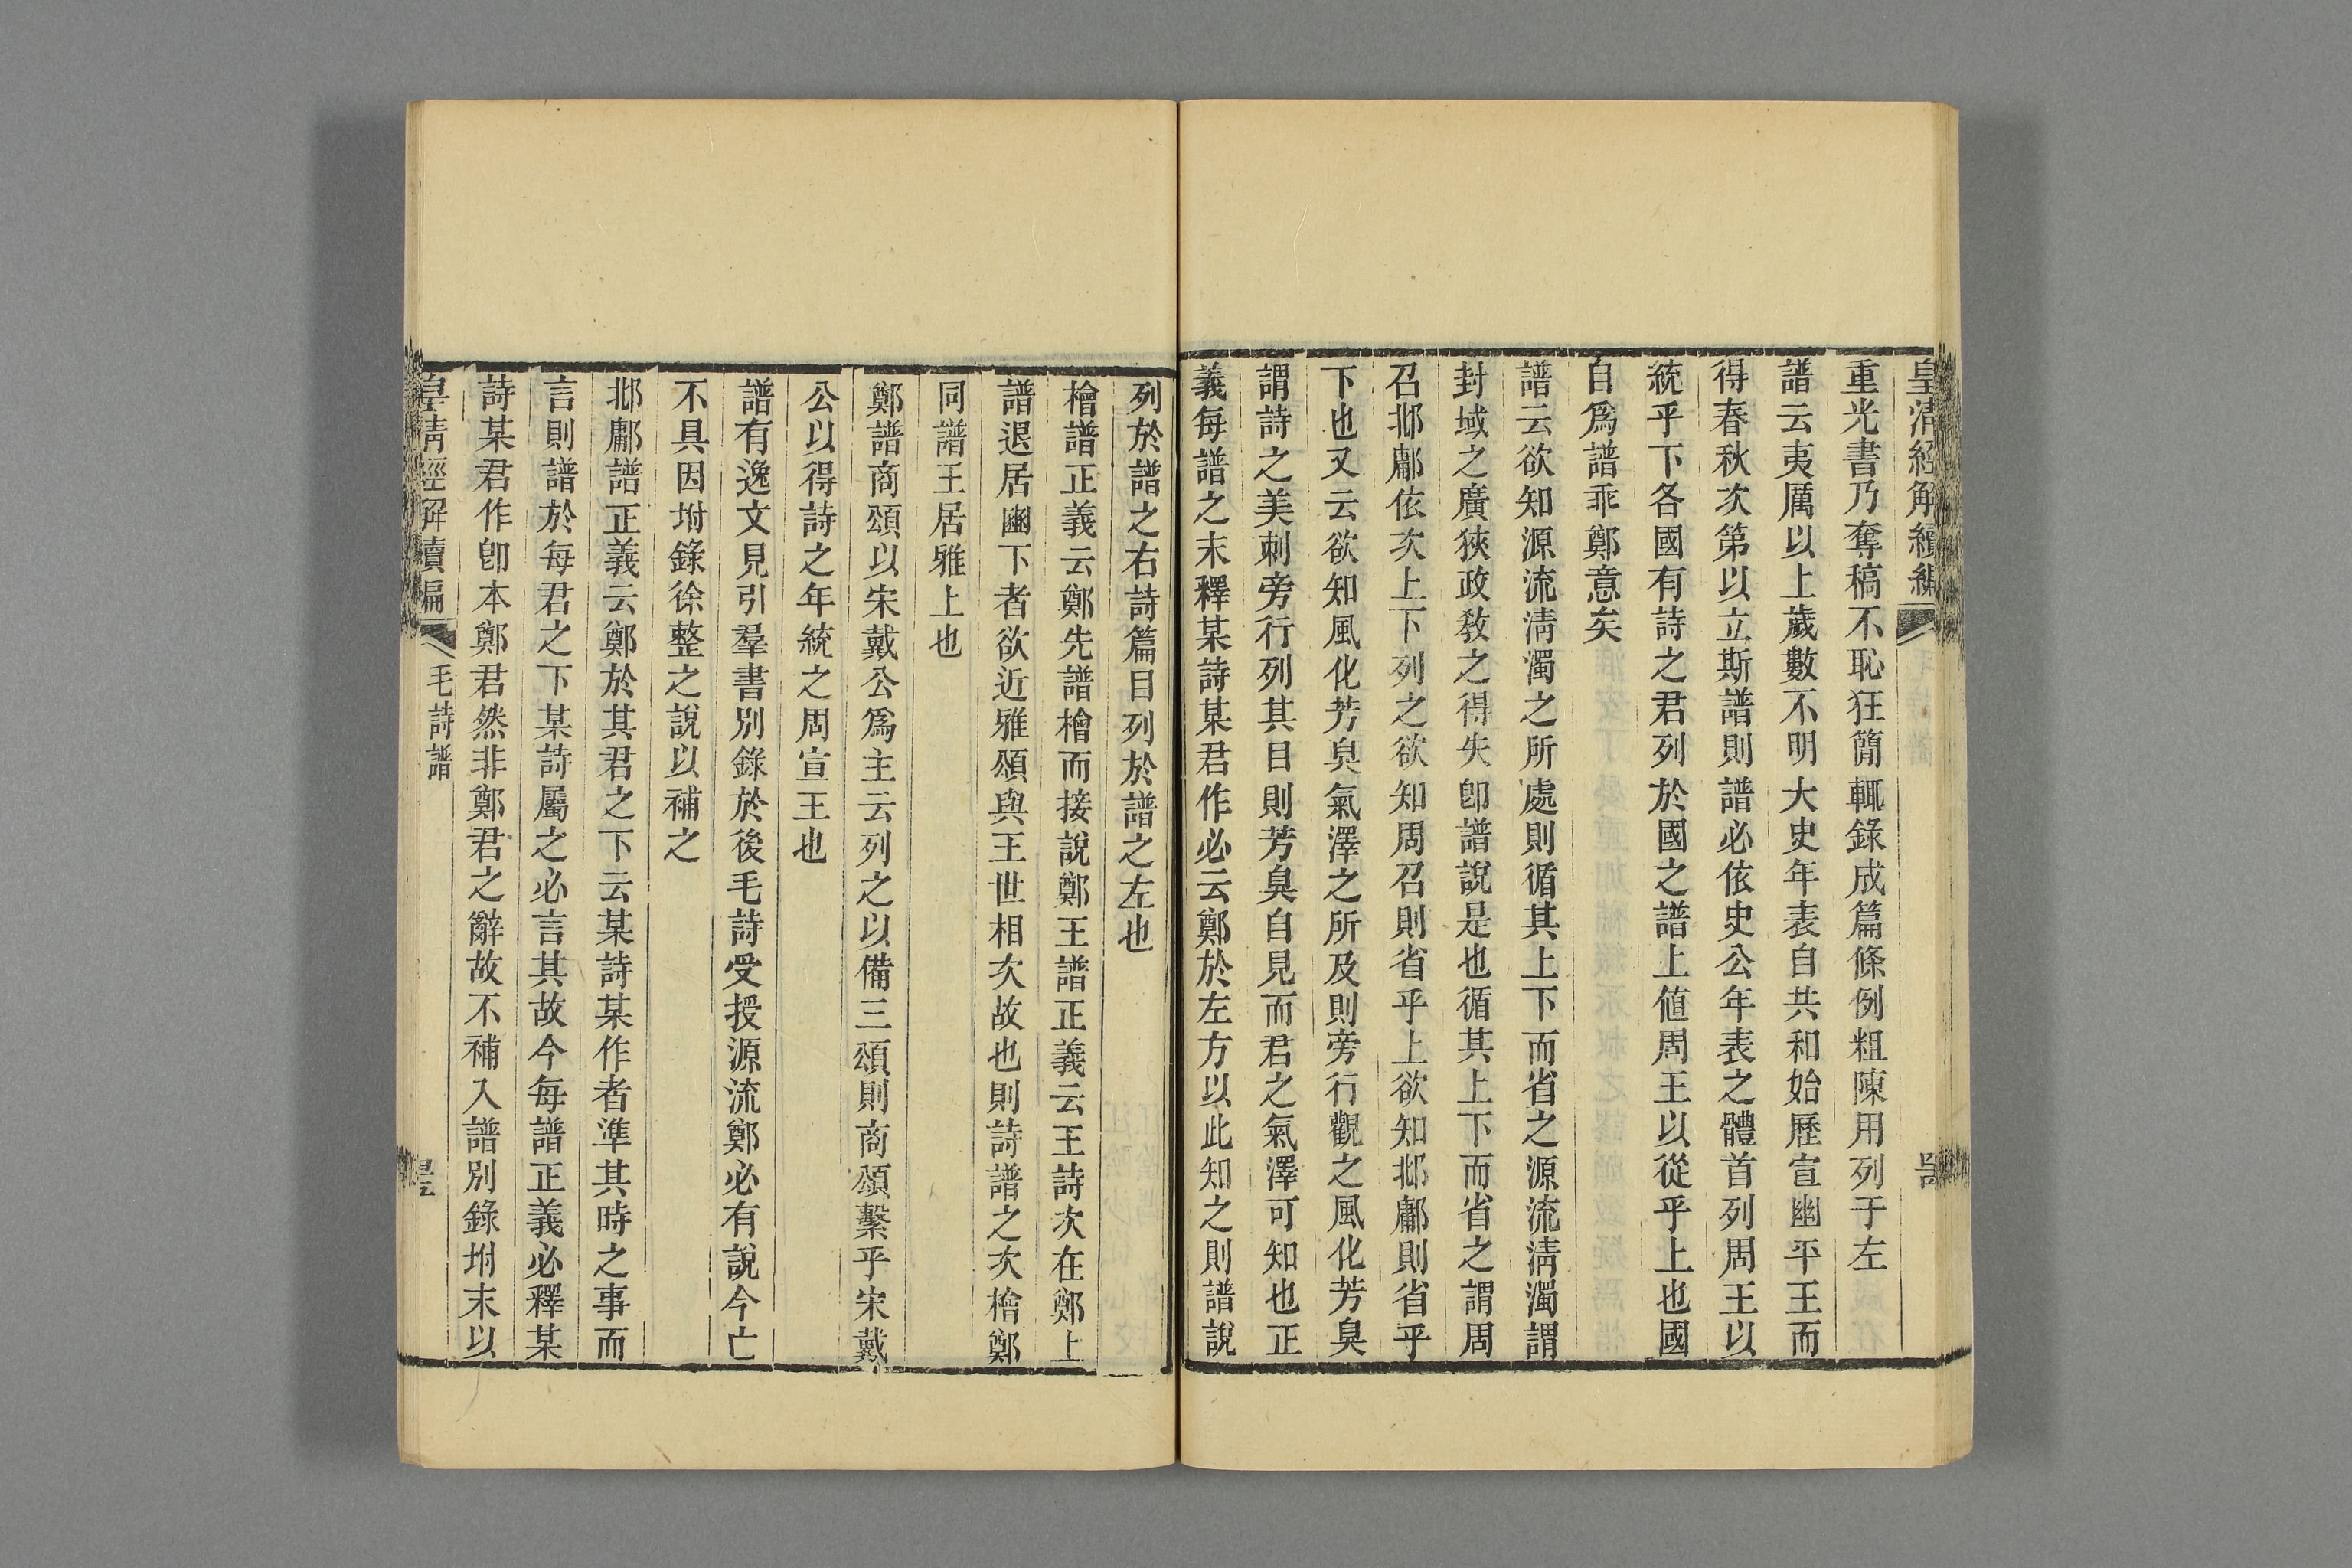 皇清經解續編
重光書乃奪稿不恥狂簡輒錄成篇條例粗陳用列于左
譜云夷厲以上歲數不明大史年表自共和始歷宣幽平王而
得春秋次第以立斯譜則譜必依史公年表之體首列周王以
統乎下各國有詩之君列於國之譜上値周王以從乎上也國
自爲譜乖鄭意矣
譜云欲知源流淸濁之所處則循其上下而省之源流淸濁謂
封域之廣狹政敎之得失卽譜說是也循其上下而省之謂周
召邶鄘依次上下列之欲知周召則省乎上欲知邶鄘則省乎
下也又云欲知風化芳臭氣澤之所及則旁行觀之風化芳臭
謂詩之美刺旁行列其目則芳臭自見而君之氣澤可知也正
義每譜之末釋某詩某君作必云鄭於左方以此知之則譜說
列於譜之右詩篇目列於譜之左也
檜譜正義云鄭先譜檜而接說鄭王譜正義云王詩次在鄭上
譜退居豳下者欲近雅頌與王世相次故也則詩譜之次檜鄭
同譜王居雅上也
鄭譜商頌以宋戴公爲主云列之以備三頌則商頌繫乎宋戴
公以得詩之年統之周宣王也
譜有逸文見引羣書別錄於後毛詩受授源流鄭必有說今亡
不具因坿錄徐整之說以補之
邶鄘譜正義云鄭於其君之下云某詩某作者準其時之事而
言則譜於每君之下某詩屬之必言其故今每譜正義必釋某
詩某君作卽本鄭君然非鄭君之辭故不補入譜別錄坿末以
皇清經解續編
毛詩譜